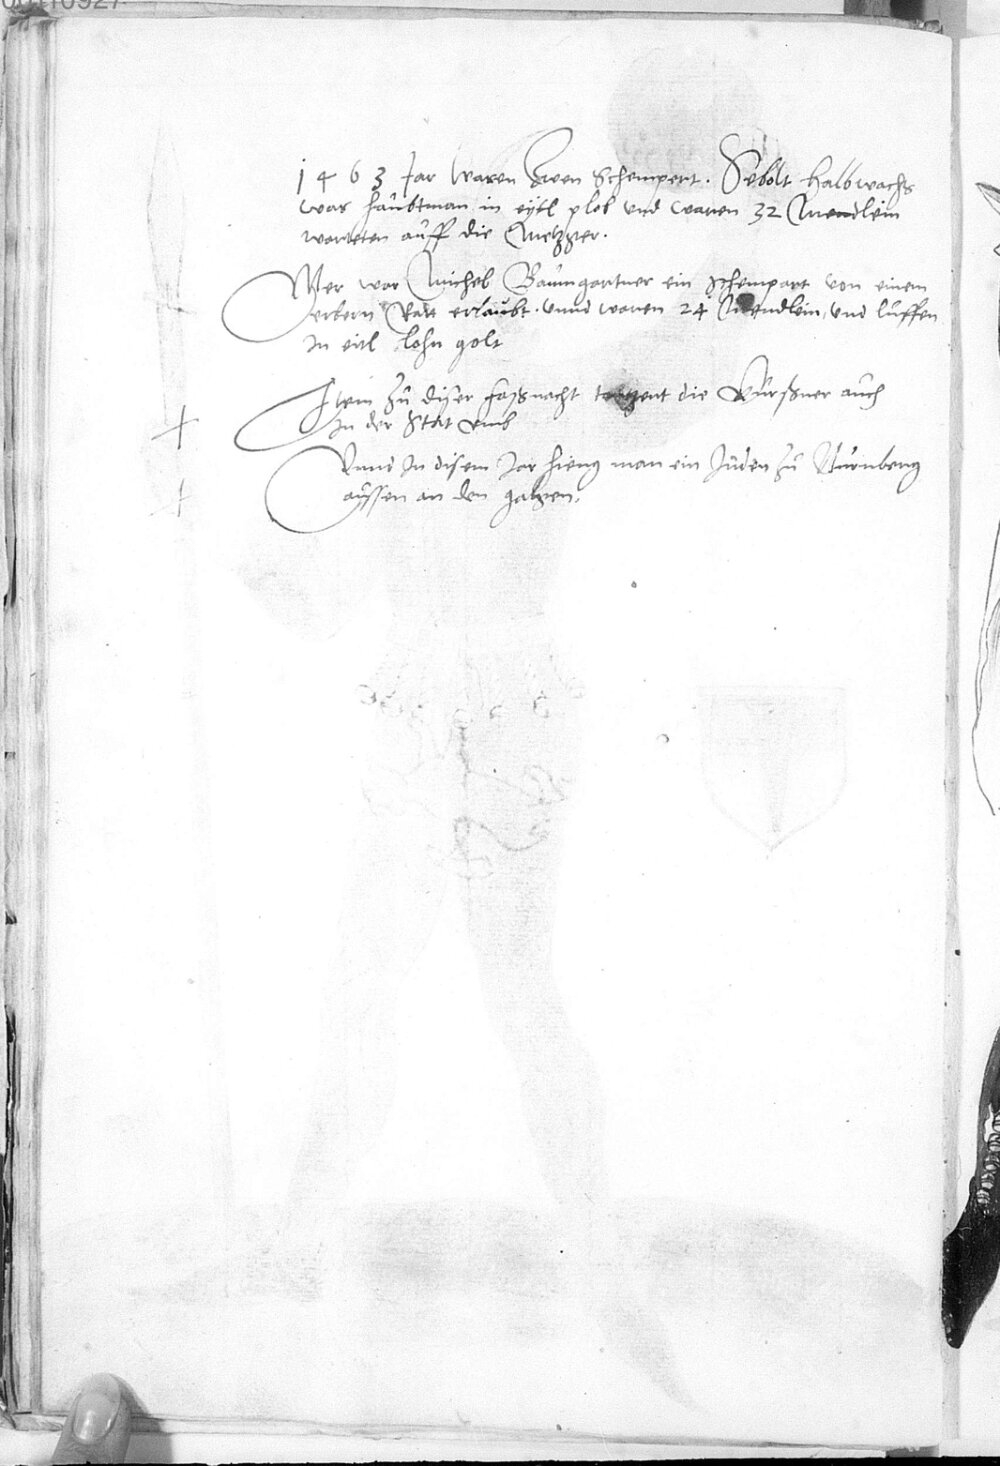 1463 Jar waren zwen Schempert. Sebolt Halbwachs
war haubtman in eytl plob und waren 32 Mendlein
warteten auff die Metzger.
Mer war Michel Baumgartner ein Schempart von einem
erbern Ratt erlaubt. vnnd waren 24 Mendlein, und luffen
In eitl lohn golt
Item zu diser faßnacht tantzent die Kürßner auch
In der Statt vmb
Vnnd In disem Jar hieng man ein Juden zu Nurmberg
aussen an den galgen.